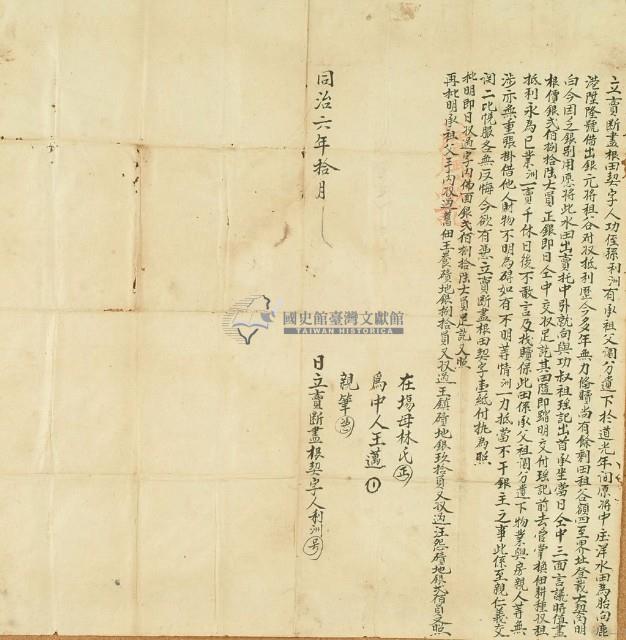 立賣斷盡根田契字人功侄孫利洲有承祖父鬮分遺下於道光年间原將中庄洋水田為胎向鹿
港陞隆號借出銀元將租谷对収抵利歷今多年無力俻贖尚有餘剩田租谷額四至界址登載大契內明
白今因乏銀別用應將此水田出賣托中引就向與功叔祖瑶記出首承坐當日仝中三面言議時值盡
根價銀弍佰捌拾陸大員正銀即日仝中交収足訖其田隨即踏明交付瑶記前去管掌換佃耕種収租
抵利永為己業洲一賣千休日後不敢言及找贖保此田係承父祖鬮分遺下物業與房親人等無
涉亦無重張掛借他人財物不明為碍如有不明等情洲一力抵當不干銀主之事此係至親仁義交
関二比悅服各無反悔今欲有憑立賣斷盡根田契字壹紙付执為照
批明即日収過字內佛面銀弍佰捌拾陸大員足訖又照
再批明承祖父手內収過舊佃王養磧地銀捌拾員又収過王鎮磧地銀玖拾員又収過汪怨磧地銀弍佰員又照
在場母林氏
為中人王邁
親筆
同治六年拾月 日立賣斷盡根契字人利洲
國史館臺灣文獻館
TAIWAN HISTORICA